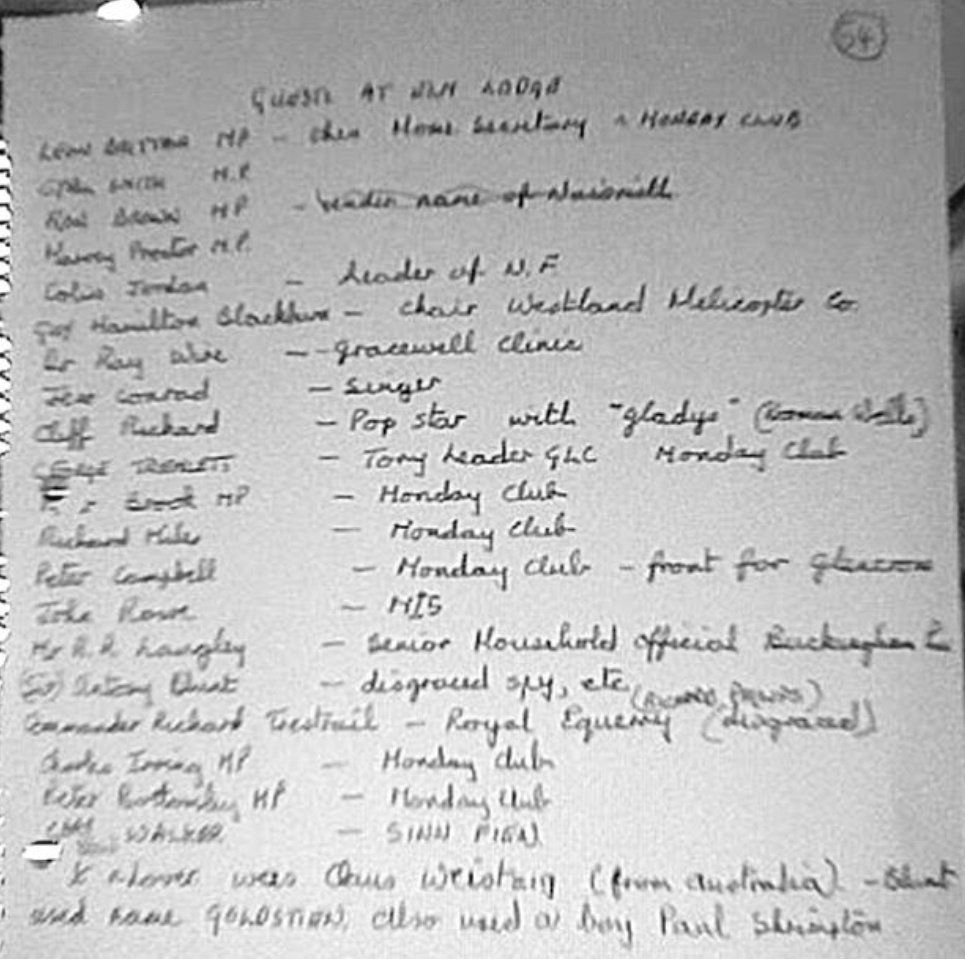 54
GUESTS AT ELM LODGE
LEON BRITTAN MP - then Home Secretary MONDAY CLUB
CYRIL SMITH M.P.
RON BROWN MP - name of Naismith
Harvey Proctor M.P.
Colin Jordan - Leader of N.F
Hamilton Blackburn - Chair Westland Helicopter Co.
Dr Ray Wire -- gracewell Clinic
Jess Conrad - Singer
Cliff Richard - Pop star with "gladys"
- Tory Leader GLC Monday Club
MP - Monday Club
Richard Miles - Monday Club
Peter Campbell - Monday Club - front for
John Rowe - MI5
Mr R.R. Langley - Senior Household Official
Antony Blunt - disgraced spy, etc
Commander Richard Trestrail - Royal Equerry (disgraced)
Charles Irving MP - Monday Club
Peter Bottomley MP - Monday Club
WALKER - SINN FIEN
was (from australia) - Blunt
used name GOLDSTIEN, also used a boy Paul